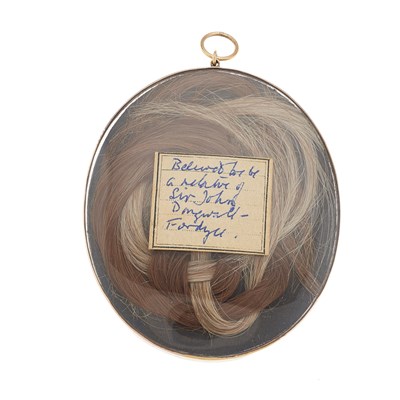 Believed to be
a relative of
Sir John
Dingwall-
Fordyce.